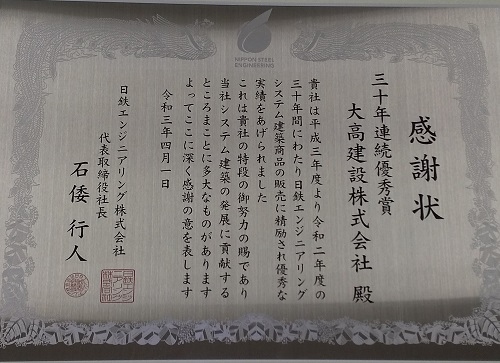 NIPPON STEEL
ENGINEERING
感謝状
三十年連続優秀賞
大高建設株式会社 殿
貴社は平成三年度より令和二年度の
三十年間にわたり日鉄エンジニアリング
システム建築商品の販売に精励され優秀な
実績をあげられました
これは貴社の特段の御努力の賜であり
当社システム建築の発展に貢献する
ところまことに多大なものがあります
よってここに深く感謝の意を表します
令和三年四月一日
日鉄エンジニアリング株式会社
代表取締役社長
石倭 行人